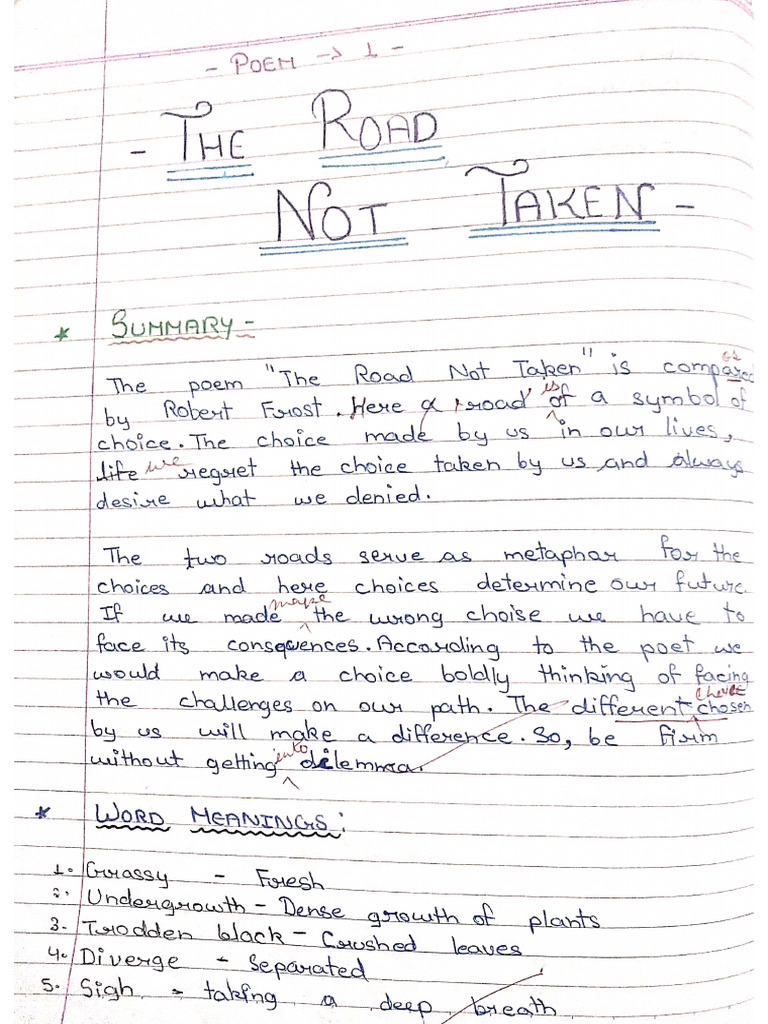 - POEM → 1 -
- THE ROAD
NOT TAKEN -
* SUMMARY -
The poem "The Road Not Taken" is compared
by Robert Frost. Here a 'road' is of a symbol of
choice. The choice made by us in our lives,
life we regret the choice taken by us and always
desire what we denied.
The two roads serve as metaphor for the
choices and here choices determine our future.
If we made make the wrong choise we have to
face its consequences. According to the poet we
would make a choice boldly thinking of facing
the challenges on our path. The different chosen
by us will make a difference. So, be firm
without getting into dilemma.
* WORD MEANINGS:
1. Grassy - Fresh
2. Undergrowth - Dense growth of plants
3. Trodden black - Crushed leaves
4. Diverge - Separated
5. Sigh - taking a deep breath